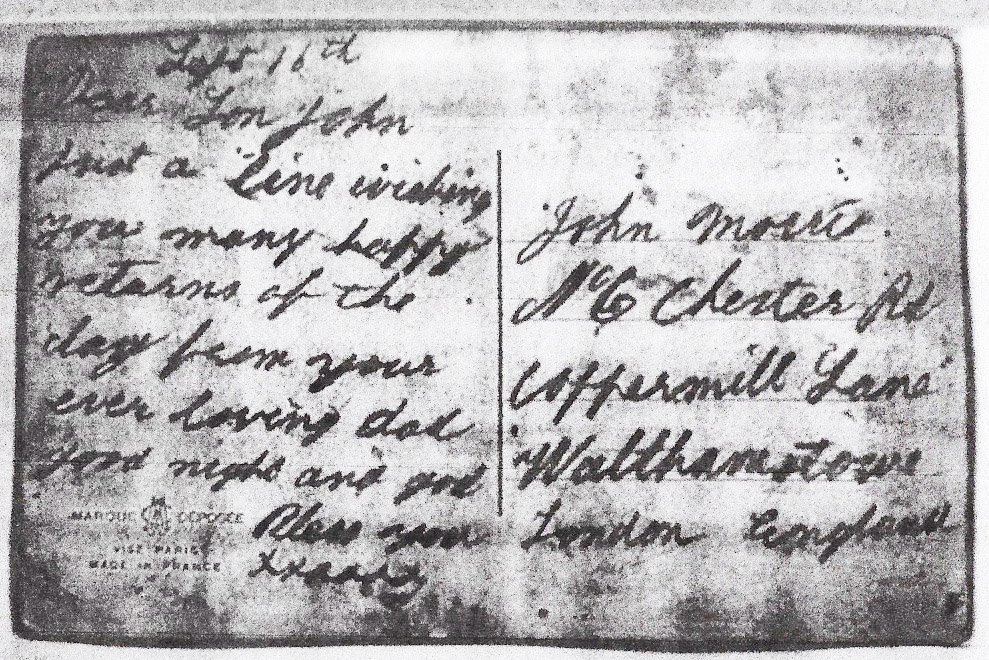 Sept 16th
Dear Son John
just a line wishing
you many happy
returns of the
day from your
ever loving dad
good night and god
Bless you
MARQUE DEPOSEE
VISE PARIS
MADE IN FRANCE
John
No 6 Chester Rd
Coppermill Lane
Walthamstowe
London England